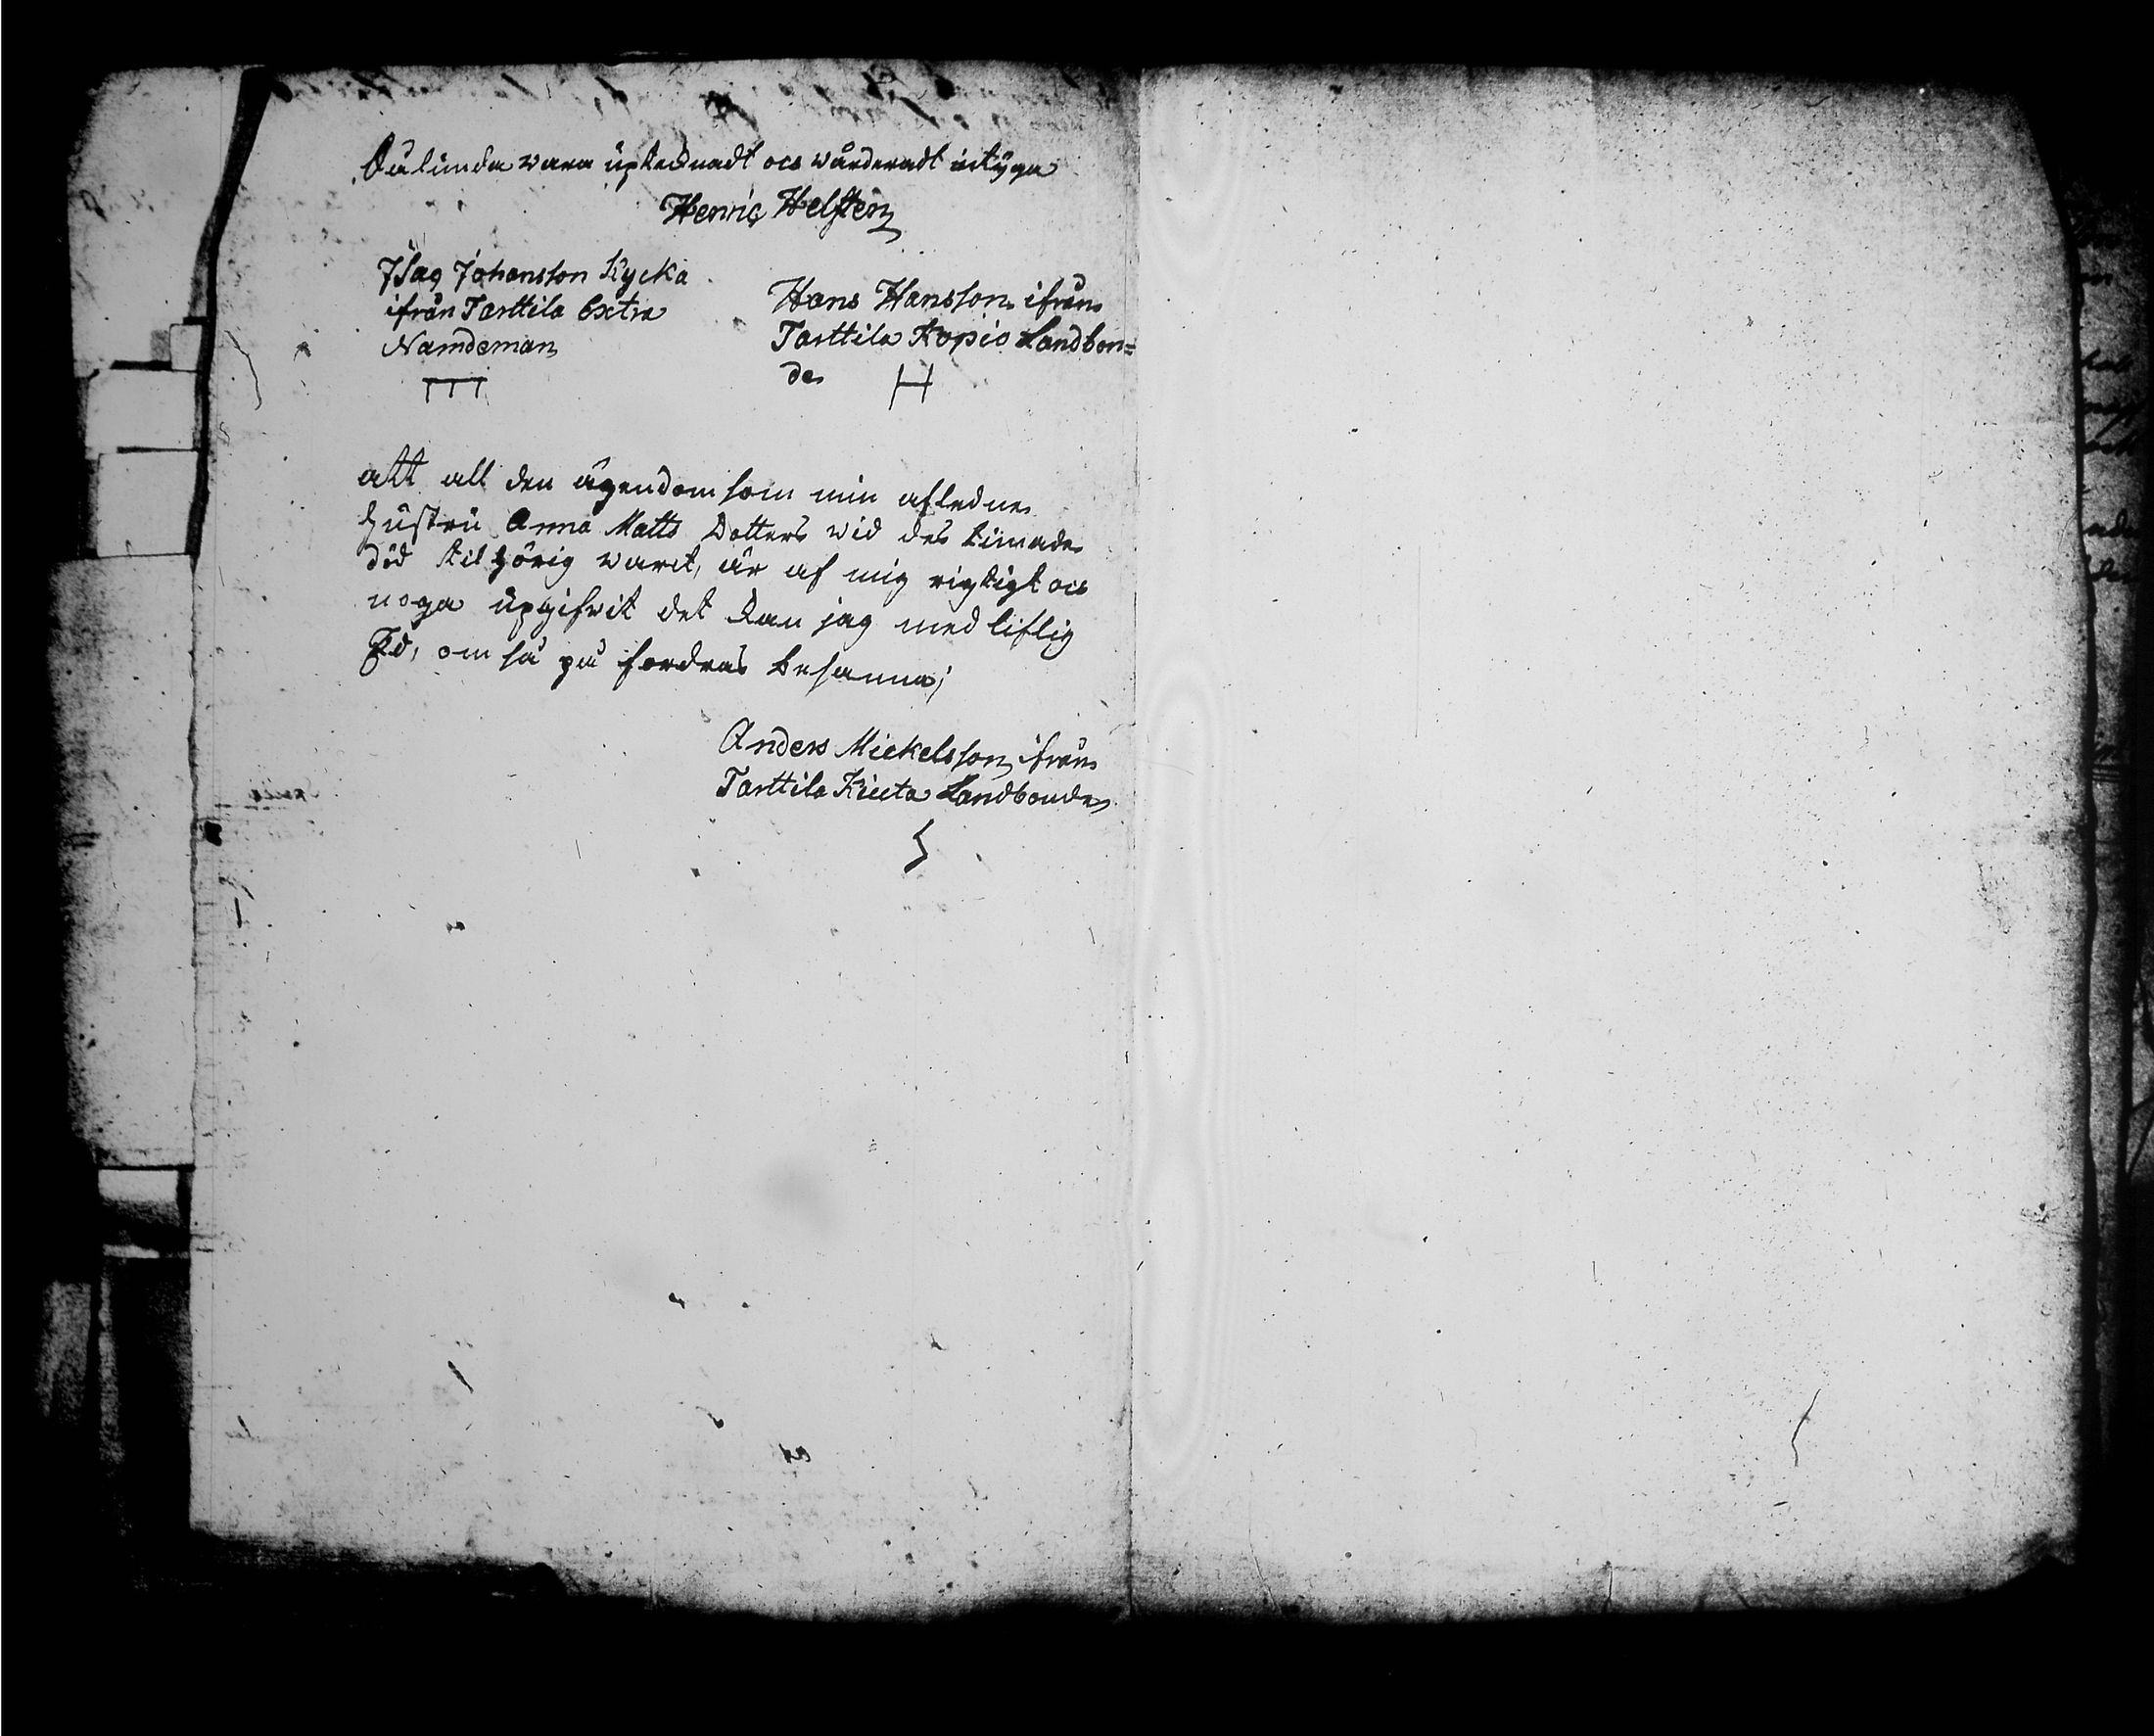 Sålunda vara uptecknadt och wärderadt intyga
Henric Helsten
Isac Johansson Kycka
ifrån Tarttila Extra
Nämdeman
Hans Hansson ifrån
Tarttila Kopio Landbon=
de H
att all den ägendom som min afledne
hustru Anna Matts Dotters wid des timade
död tilhörig warit, är af mig rigtigt och
noga upgifwit det kan jag med liflig
Ed, om så på fordras besanna;
Anders Mickelsson ifrån
Tarttila Kiuta Landbonde